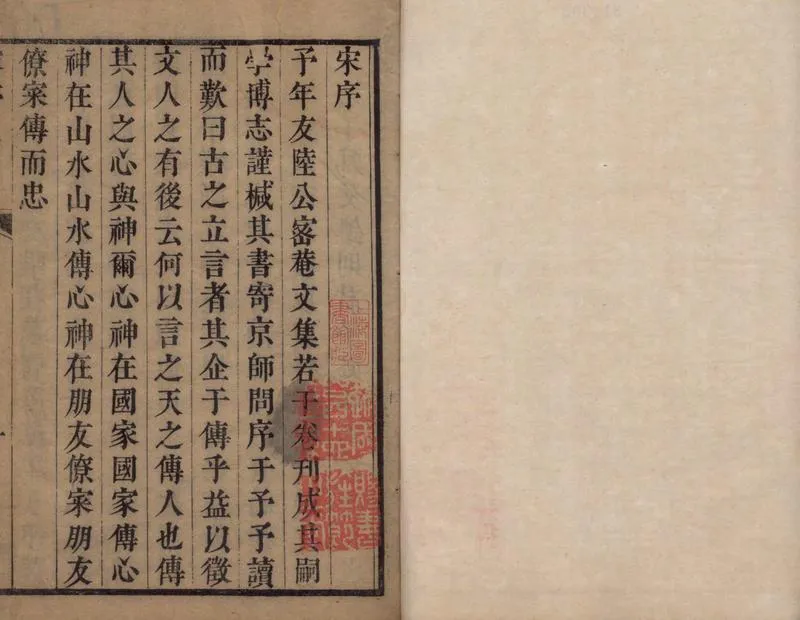 宋序
予年友陸公宻菴文集若干卷刊成其嗣
學博志謹椷其書寄京師問序于予予讀
而歎曰古之立言者其企于傳乎益以徵
文人之有後云何以言之天之傳人也傳
其人之心與神爾心神在國家國家傳心
神在山水山水傳心神在朋友僚寀朋友
僚寀傳而忠
上海圖
書館藏